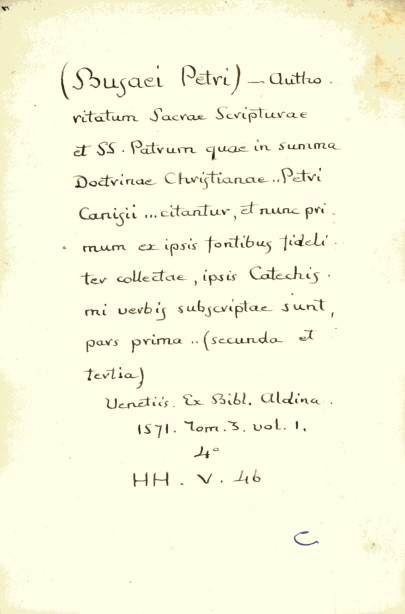 (Busaei Petri) — Autho.
ritatum Sacrae Scripturae
et SS. Patrum quae in summa
Doctrinae Christianae .. Petri
Canisii ... citantur, et nunc pri.
mum ex ipsis fontibus fideli.
ter collectae, ipsis Catechis.
mi verbis subscriptae sunt,
pars prima .. (secunda et
tertia)
Venetiis. Ex Bibl. Aldina.
1571. Tom. 3. vol. 1.
4°
HH. V. 46
C